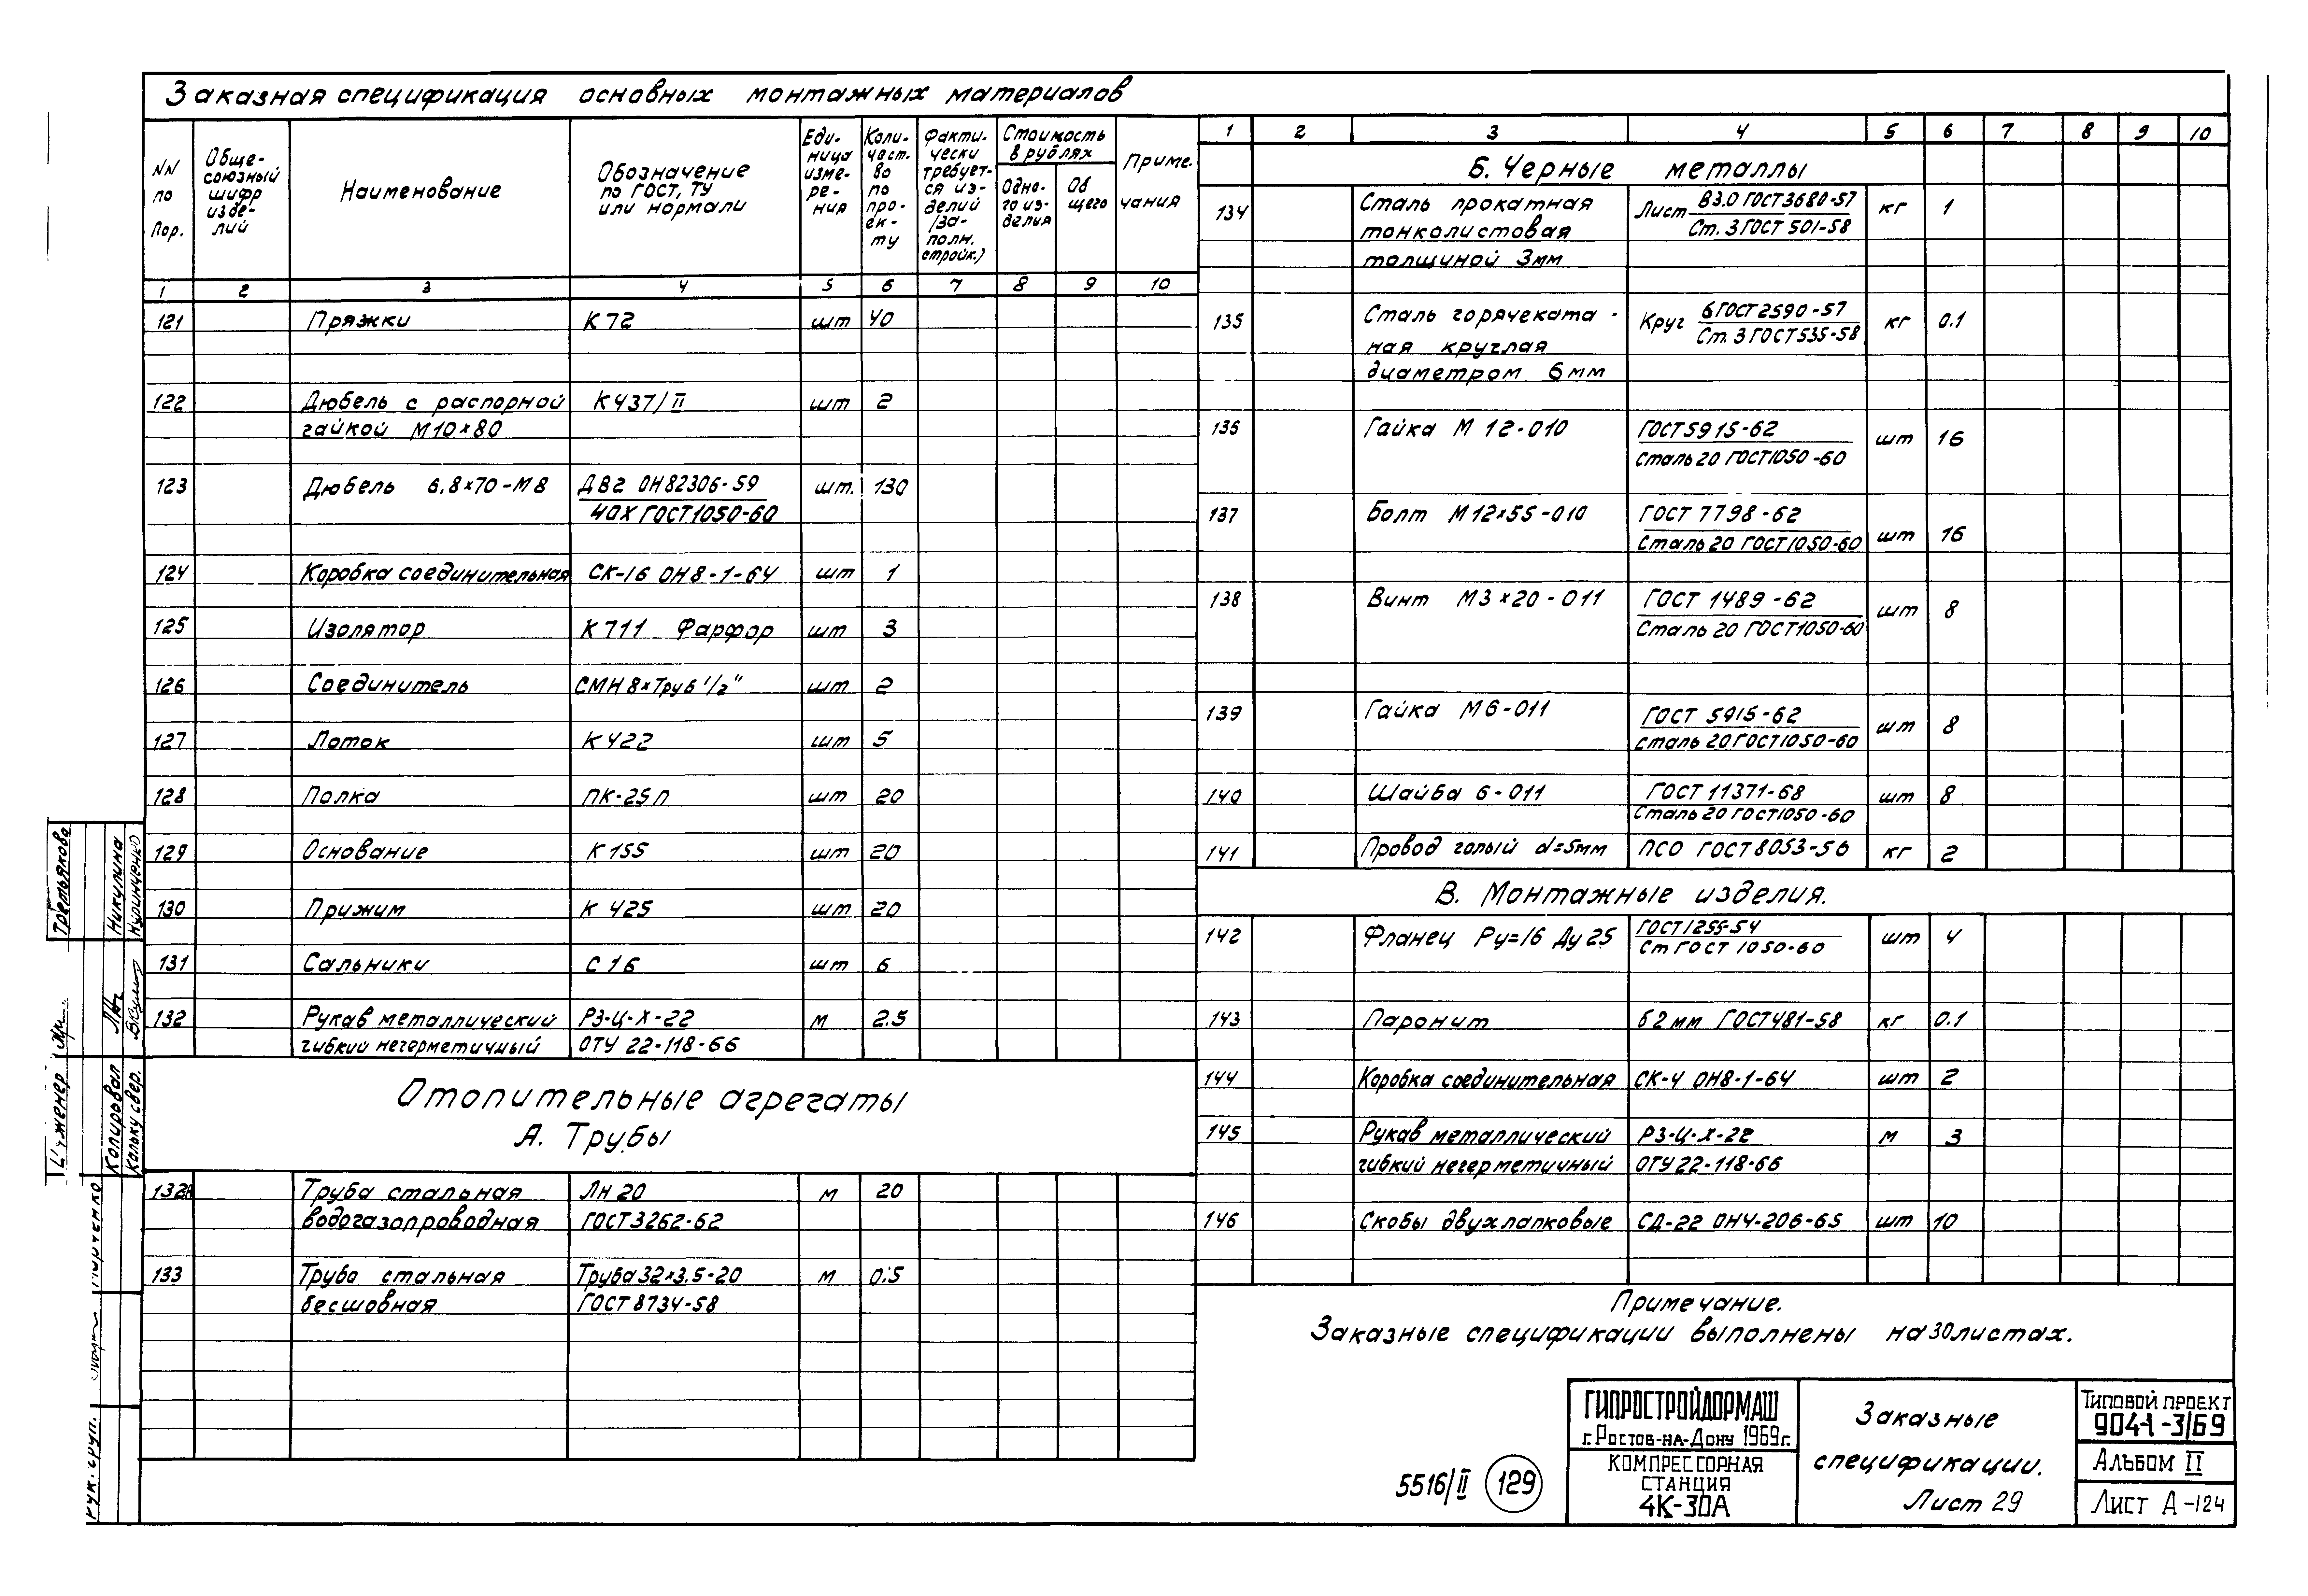 Заказная спецификация основных монтажных материалов
NN по пор.
Обще-
союзный
шифр
изде-
лий
Наименование
Обозначение
по ГОСТ, ТУ
или нормали
Еди-
ница
изме-
ре-
ния
Коли-
чест.
во
по
про-
ек-
ту
Факти-
чески
требует-
ся из-
делий
/за-
полн.
стройк.)
Стоимость
в рублях
Одно-
го из-
делия
Об
щего
Приме.
чания
1 2 3 4 5 6 7 8 9 10
121 Пряжки К72 шт 40
122 Дюбель с распорной К437/II шт 2
гайкой М10×80
123 Дюбель 6,8×70-М8 ДВ2 ОН82306-59 шт. 130
40Х ГОСТ1050-60
124 Коробка соединительная СК-16 ОН8-1-64 шт 1
125 Изолятор К711 Фарфор шт 3
126 Соединитель СМН8×Труб 1/2" шт 2
127 Лоток К422 шт 5
128 Полка ПК-25П шт 20
129 Основание К155 шт 20
130 Прижим К 425 шт 20
131 Сальники С16 шт 6
132 Рукав металлический РЗ-Ц-Х-22 м 2.5
гибкий негерметичный ОТУ 22-118-66
Отопительные агрегаты
А. Трубы
132А Труба стальная Лн 20 м 20
водогазопроводная ГОСТ3262-62
133 Труба стальная Труба 32×3,5-20 м 0.5
бесшовная ГОСТ 8734-58
1 2 3 4 5 6 7 8 9 10
Б. Черные металлы
134 Сталь прокатная Лист В3.0 ГОСТ3680-57 кг 1
тонколистовая Ст. 3 ГОСТ 501-58
толщиной 3мм
135 Сталь горячеката- Круг 6 ГОСТ2590-57 кг 0.1
ная круглая Ст. 3 ГОСТ 535-58
диаметром 6мм
136 Гайка М 12-010 ГОСТ5915-62 шт 16
Сталь 20 ГОСТ1050-60
137 Болт М12×55-010 ГОСТ 7798-62 шт 16
Сталь 20 ГОСТ1050-60
138 Винт М3×20-011 ГОСТ 1489-62 шт 8
Сталь 20 ГОСТ1050-60
139 Гайка М6-011 ГОСТ 5915-62 шт 8
сталь 20 ГОСТ1050-60
140 Шайба 6-011 ГОСТ 11371-68 шт 8
Сталь 20 ГОСТ1050-60
141 Провод голый d=5мм ПСО ГОСТ8053-56 кг 2
В. Монтажные изделия.
142 Фланец Ру=16 Ду 25 ГОСТ1255-54 шт 4
Ст ГОСТ 1050-60
143 Паронит б 2 мм ГОСТ481-58 кг 0.1
144 Коробка соединительная СК-4 ОН8-1-64 шт 2
145 Рукав металлический РЗ-Ц-Х-22 м 3
гибкий негерметичный ОТУ 22-118-66
146 Скобы двухлапковые СД-22 ОН4-206-65 шт 10
Примечание.
Заказные спецификации выполнены на 30 листах.
5516/II 129
ГИПРОСТРОЙДОРМАШ
г. Ростов-на-Дону 1969г.
КОМПРЕССОРНАЯ
СТАНЦИЯ
4К-30А
Заказные
спецификации.
Лист 29
Типовой проект
904-1-3/69
Альбом II
Лист А-124
Третьякова
Никулина
Куринченко
Копировал
Кальку свер.
Рук. груп.